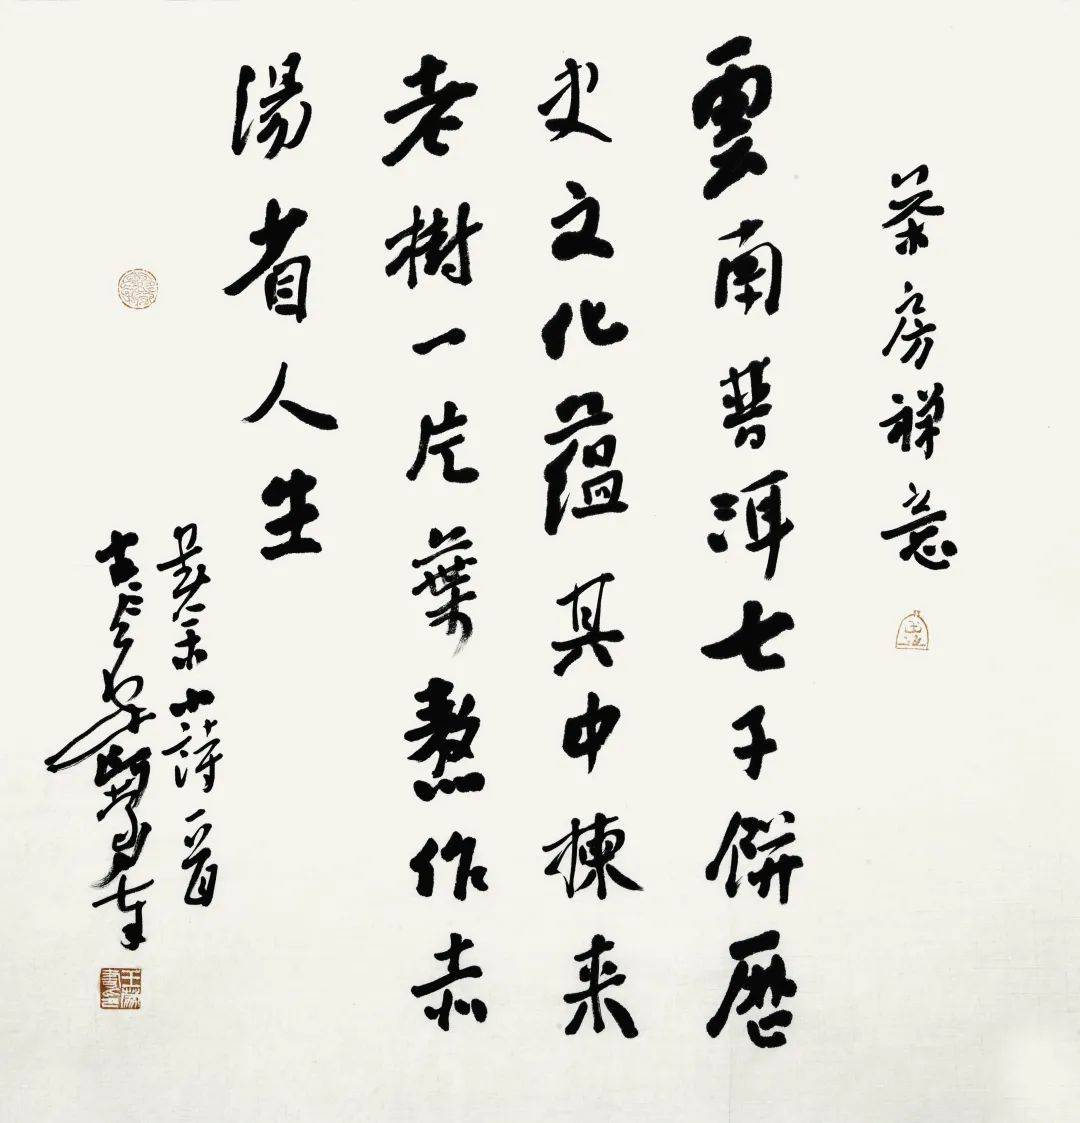 茶房禅意
雲南普洱七子餅歷
史文化蕴其中揀来
老樹一片葉熬作赤
湯省人生
小詩一首